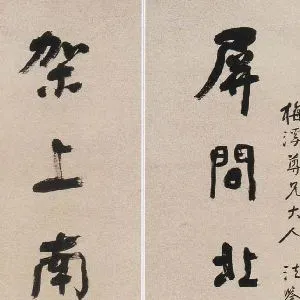 梅浮尊兄大人 法鑒
屏間北
架上南